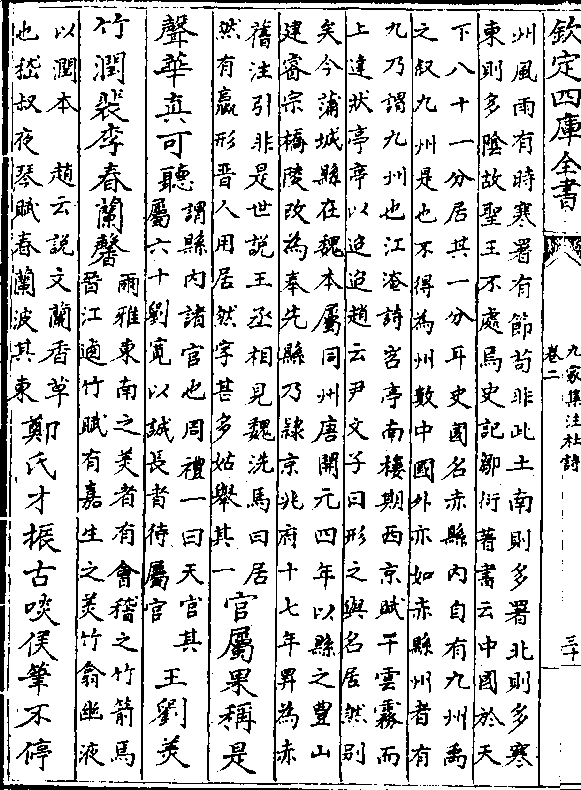 欽定四庫全書
九家集注杜詩
卷二
三十
州風雨有時寒暑有節苟非此土南則多暑北則多寒
東則多陰故聖王不處焉史記鄒衍著書云中國於天
下八十一分居其一分耳史國名赤縣內自有九州禹
之叙九州是也不得為州數中國外亦如赤縣州者有
九乃謂九州也江淹詩岧亭南樓期西京賦干雲霧而
上達狀亭亭以迢迢趙云尹文子曰形之與名居然別
矣今蒲城縣在魏本屬同州唐開元四年以縣之豐山
建睿宗橋陵改為奉先縣乃隸京兆府十七年昇為赤
舊注引非是世說王丞相見魏洗馬曰居
然有羸形晉人用居然字甚多姑舉其一
官屬果稱是
聲華真可聽
謂縣內諸官也周禮一曰天官其
屬六十劉寬以誠長者待屬官
王劉美
竹潤裴李春蘭馨
爾雅東南之美者有會稽之竹箭馬
晉江逌竹賦有嘉生之美竹翁幽液
以潤本 趙云説文蘭香草
也嵇叔夜琴賦春蘭波其東
鄭氏才振古啖侯筆不停